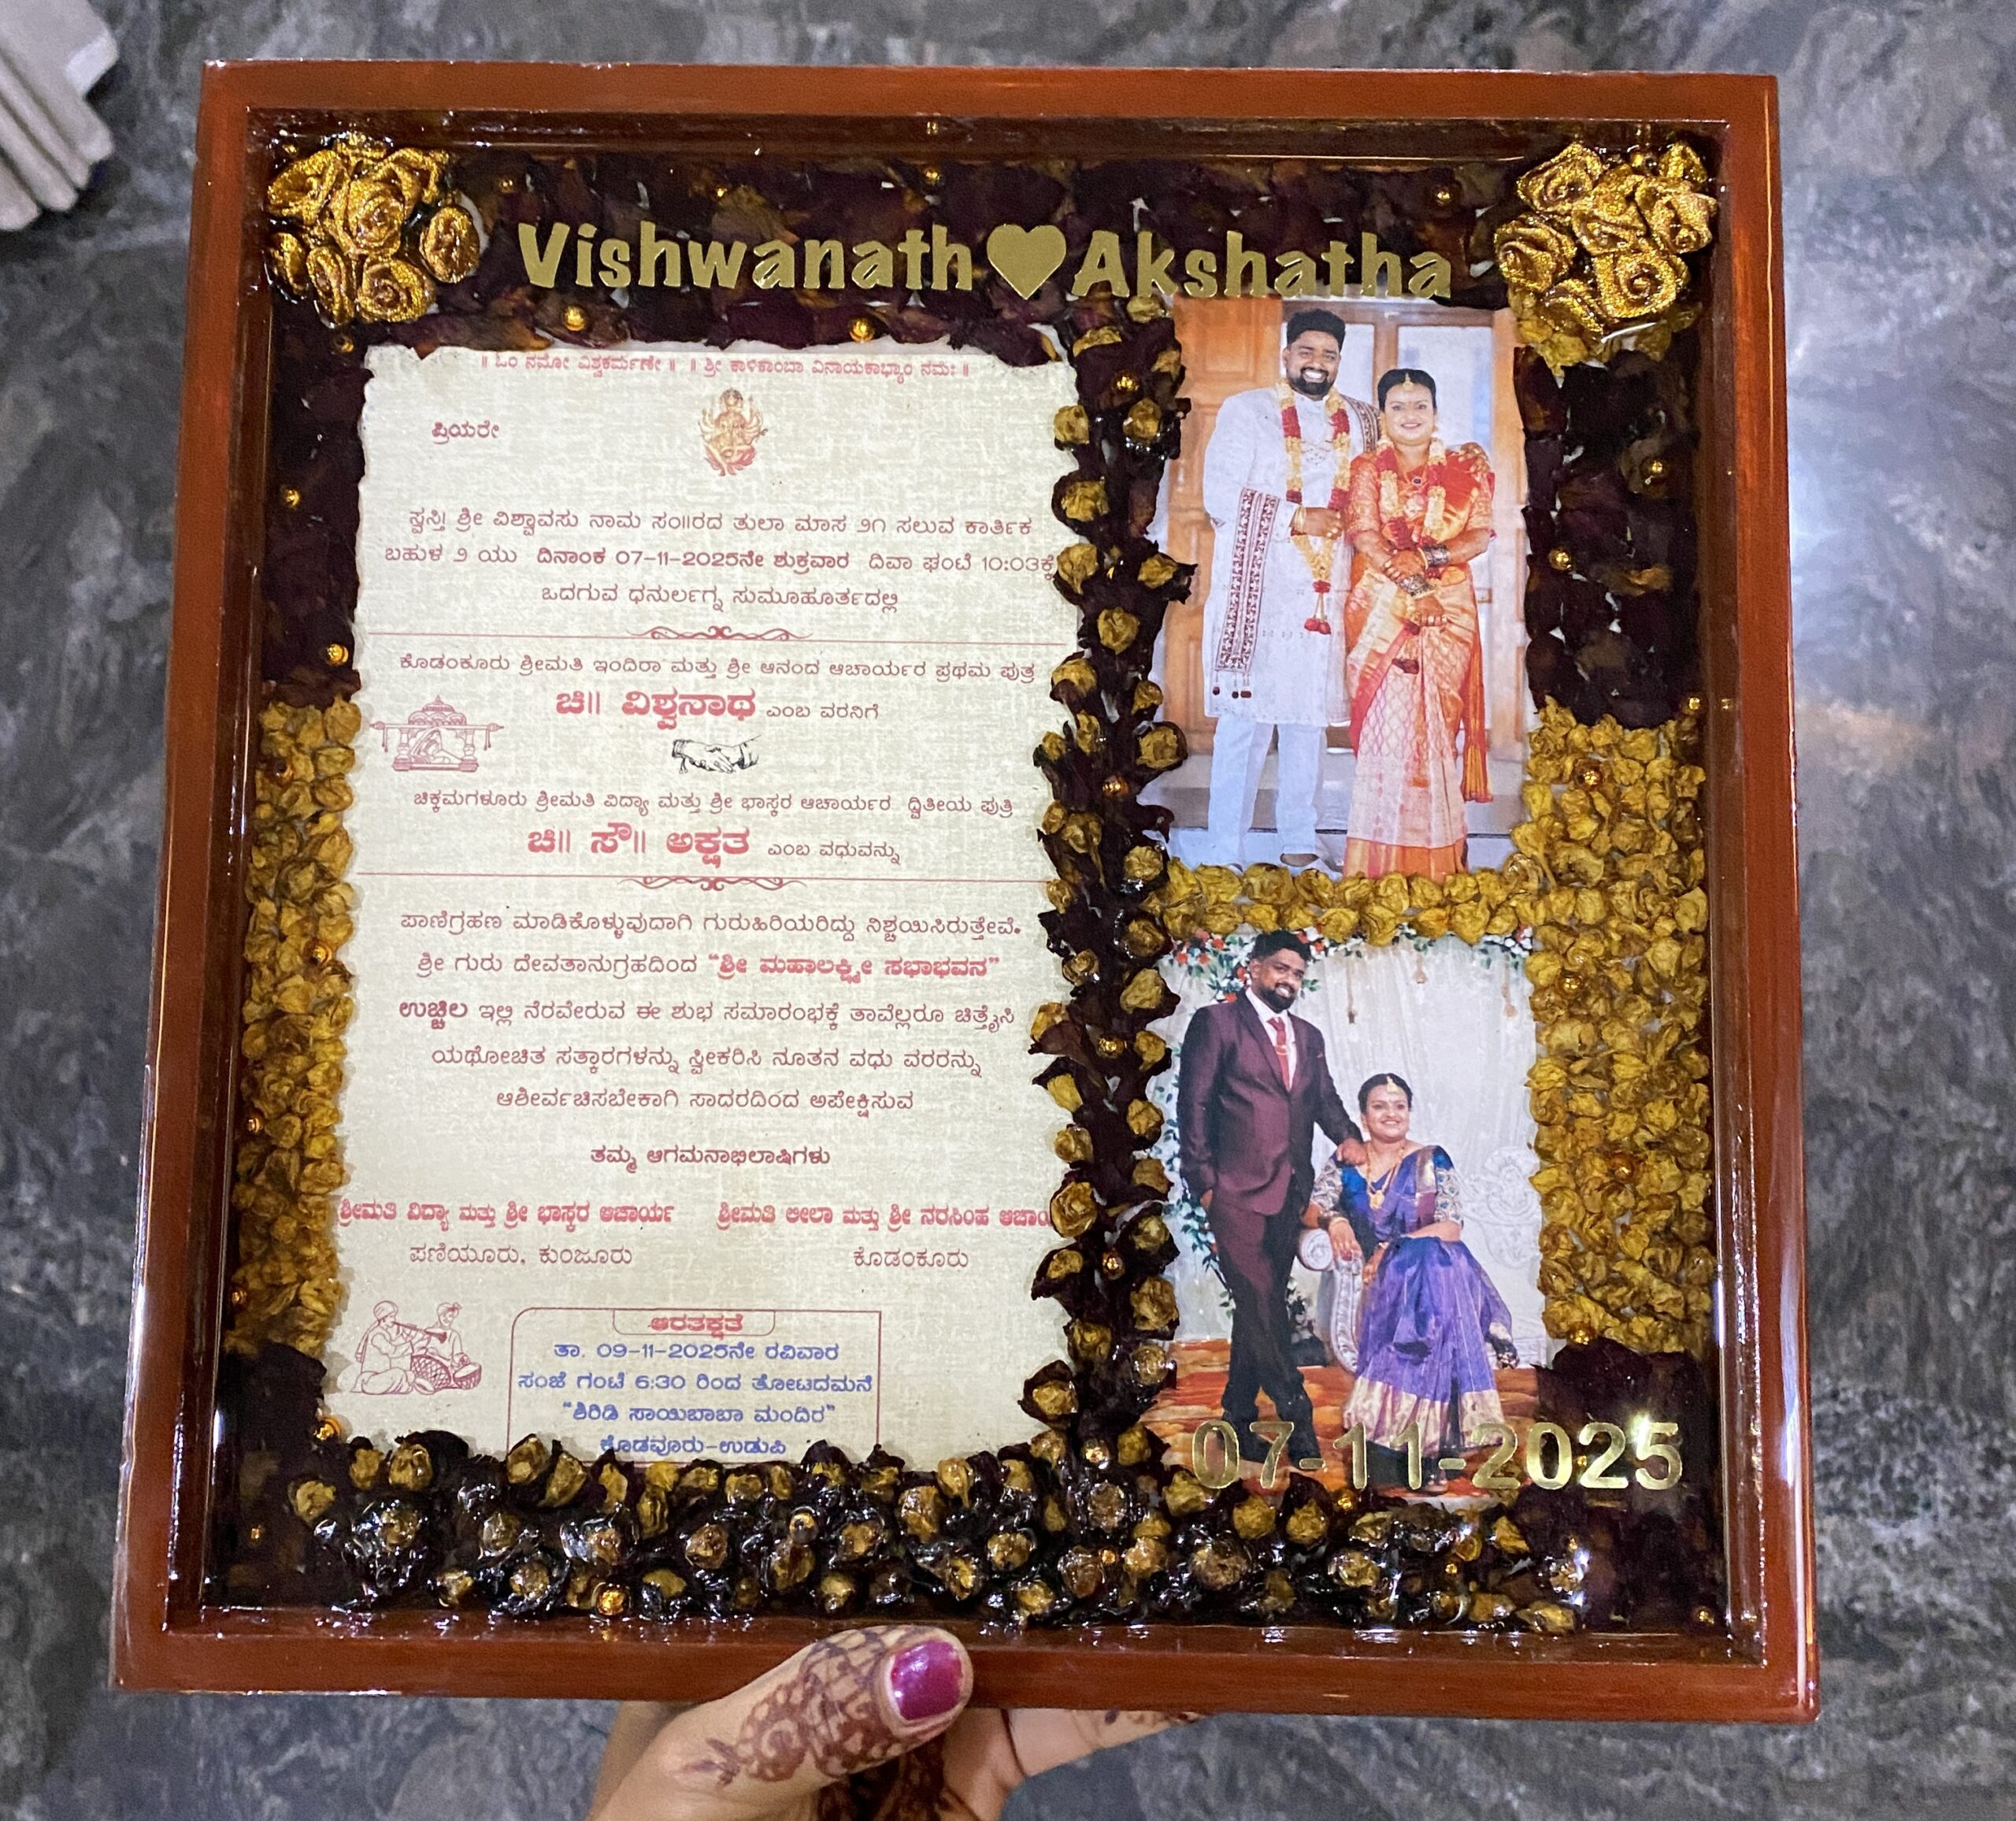 Vishwanath ♥ Akshatha
॥ ಓಂ ನಮೋ ವಿಶ್ವಕರ್ಮಣೇ ॥ ॥ ಶ್ರೀ ಕಾಳಿಕಾಂಬಾ ವಿನಾಯಕಾಭ್ಯಾಂ ನಮಃ ॥
ಪ್ರಿಯರೇ
ಸ್ವಸ್ತಿ ಶ್ರೀ ವಿಶ್ವಾವಸು ನಾಮ ಸಂ॥ರದ ತುಲಾ ಮಾಸ ೨೧ ಸಲುವ ಕಾರ್ತಿಕ
ಬಹುಳ ೨ ಯು ದಿನಾಂಕ 07-11-2025ನೇ ಶುಕ್ರವಾರ ದಿವಾ ಘಂಟೆ 10:03ಕ್ಕೆ
ಒದಗುವ ಧನುರ್ಲಗ್ನ ಸುಮೂಹೂರ್ತದಲ್ಲಿ
ಕೊಡಂಕೂರು ಶ್ರೀಮತಿ ಇಂದಿರಾ ಮತ್ತು ಶ್ರೀ ಆನಂದ ಆಚಾರ್ಯರ ಪ್ರಥಮ ಪುತ್ರ
ಚಿ॥ ವಿಶ್ವನಾಥ ಎಂಬ ವರನಿಗೆ
ಚಿಕ್ಕಮಗಳೂರು ಶ್ರೀಮತಿ ವಿದ್ಯಾ ಮತ್ತು ಶ್ರೀ ಭಾಸ್ಕರ ಆಚಾರ್ಯರ ದ್ವಿತೀಯ ಪುತ್ರಿ
ಚಿ॥ ಸೌ॥ ಅಕ್ಷತ ಎಂಬ ವಧುವನ್ನು
ಪಾಣಿಗ್ರಹಣ ಮಾಡಿಕೊಳ್ಳುವುದಾಗಿ ಗುರುಹಿರಿಯರಿದ್ದು ನಿಶ್ಚಯಿಸಿರುತ್ತೇವೆ.
ಶ್ರೀ ಗುರು ದೇವತಾನುಗ್ರಹದಿಂದ "ಶ್ರೀ ಮಹಾಲಕ್ಷ್ಮೀ ಸಭಾಭವನ"
ಉಚ್ಚಿಲ ಇಲ್ಲಿ ನೆರವೇರುವ ಈ ಶುಭ ಸಮಾರಂಭಕ್ಕೆ ತಾವೆಲ್ಲರೂ ಚಿತ್ತೈಸಿ
ಯಥೋಚಿತ ಸತ್ಕಾರಗಳನ್ನು ಸ್ವೀಕರಿಸಿ ನೂತನ ವಧು ವರರನ್ನು
ಆಶೀರ್ವಚಿಸಬೇಕಾಗಿ ಸಾದರದಿಂದ ಅಪೇಕ್ಷಿಸುವ
ತಮ್ಮ ಆಗಮನಾಭಿಲಾಷಿಗಳು
ಶ್ರೀಮತಿ ವಿದ್ಯಾ ಮತ್ತು ಶ್ರೀ ಭಾಸ್ಕರ ಆಚಾರ್ಯ ಶ್ರೀಮತಿ ಲೀಲಾ ಮತ್ತು ಶ್ರೀ ನರಸಿಂಹ
ಪಣಿಯೂರು, ಕುಂಜೂರು ಕೊಡಂಕೂರು
ಆರತಕ್ಷತೆ
ತಾ. 09-11-2025ನೇ ರವಿವಾರ
ಸಂಜೆ ಗಂಟೆ 6:30 ರಿಂದ ತೋಟದಮನೆ
"ಶಿರಿಡಿ ಸಾಯಿಬಾಬಾ ಮಂದಿರ"
ಕೊಡವೂರು-ಉಡುಪಿ
07-11-2025